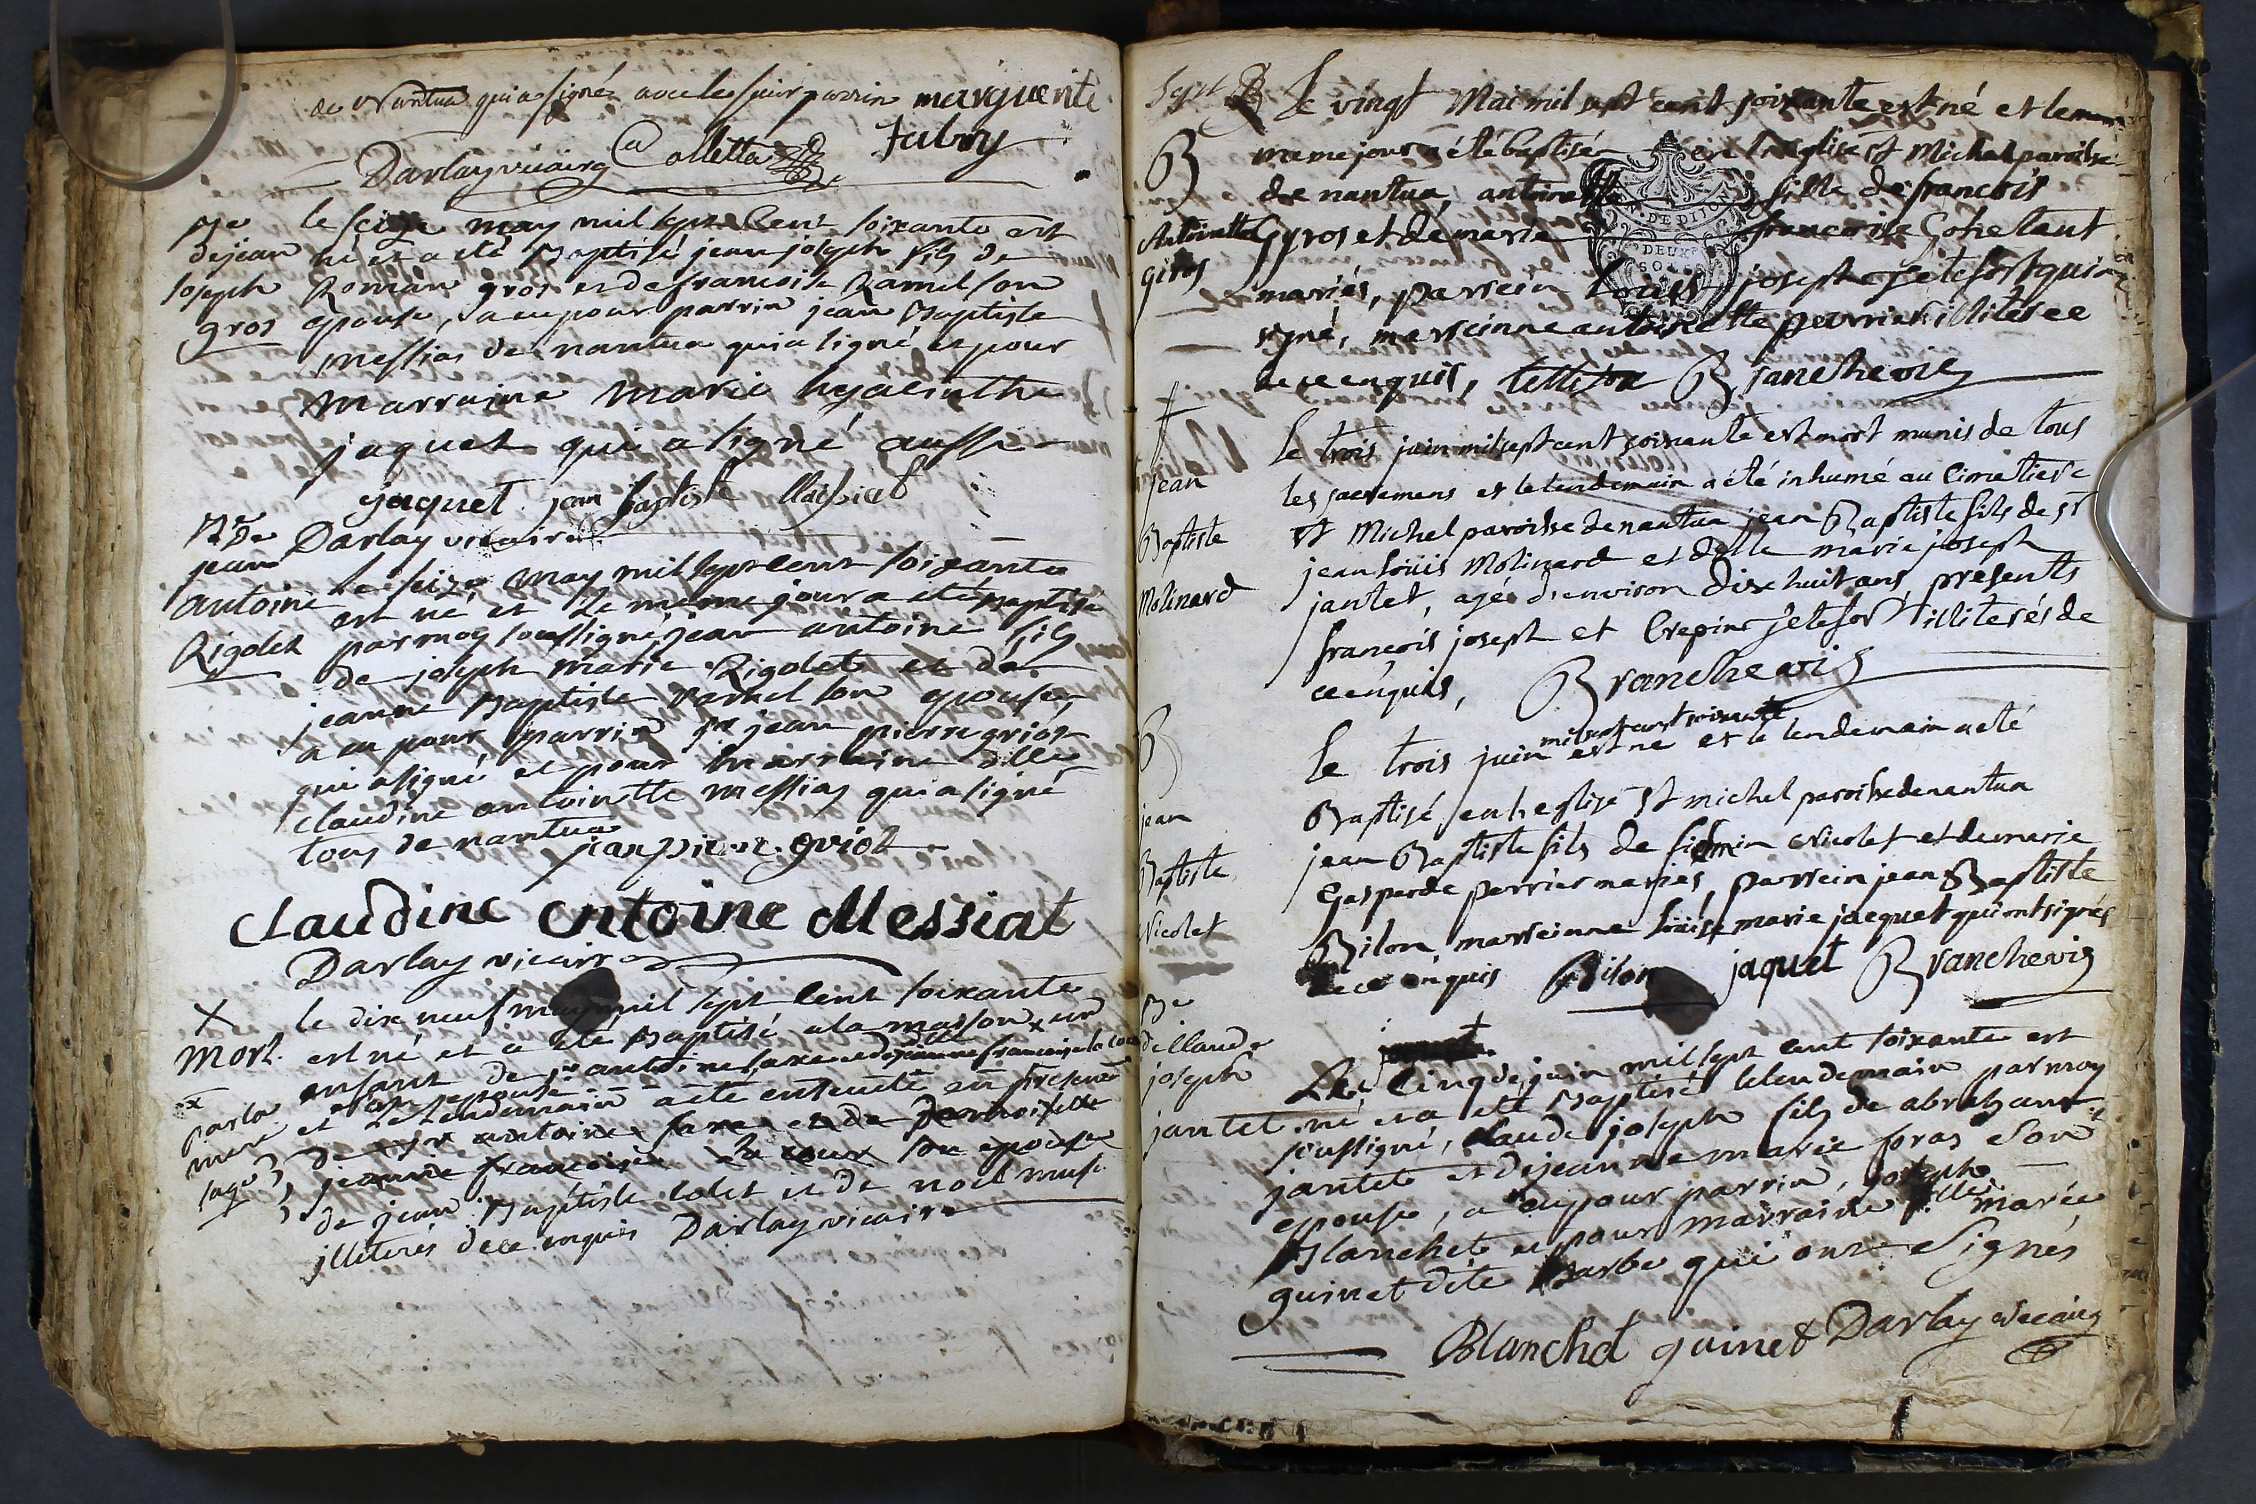 de Nantua qui a signé avec le sieur parrin marguerite
Aubry
Darlay vicaire Colletta
Be le seize may mil sept cent soixante est
de jean né et a eté Baptisé jean joseph fils de
joseph Romain gros et de francoise Ramel son
gros epouse, a eu pour parrin jean Baptiste
messias de nantua qui a signé et pour
marraine marie hyacinthe
jaquet qui a signé aussi
jaquet jean baptiste Messiat
Be de Darlay vicaire
jean le seize may mil sept cent soixante
antoine est né et le meme jour a eté Baptisé
Rigolet par moy soussigné jean antoine fils
de joseph marie Rigolet et de
jeanne Baptiste Ramel son epouse,
a eu pour parrin sr jean pierre griot
qui a signé et pour marraine dlle
claudine antoinette messias qui a signé
tous de nantua
jean pierre griot
claudine antoine Messiat
Darlay vicaire
X le dix neuf may mil sept cent soixante
mort est né et a eté Baptisé a la maison x un
enfant de sr antoine faxe et de dlle jeanne francoise la cour
x par la et son epouse
mere et le lendemain a eté enterré en presence
sage de sr antoine faxe et de demoiselle
jeanne francoise la cour son epouse
de jean Baptiste colet et de noel
jlliterés de ce enquis Darlay vicaire
Sept B Le vingt Mai mil sept cent soixante est né et le
B meme jour a été baptisée en l'eglise st Michel paroisse
de nantua, antoinette fille de francois
Antoinette Gyros et de marie francoise Gohelant
giros mariés, parrein Louis joseph jetefort qui a
signé, marreinne antoinette perrier illiteree
de ce enquis, Branchevie
† Le trois juin mil sept cent soixante est mort munis de tous
jean les sacremens et le lendemain a été inhumé au cimetiere
Baptiste st Michel paroisse de nantua jean Baptiste fils de sr
Molinard jean Loüis Molinard et dlle marie joseph
jantet, agé d'environ dix huit ans, presents
francois joseph et Crepine jetefort illiterés de
ce enquis, Branchevie
B mil sept cent soixante
Le trois juin est né et le lendemain a eté
jean Baptisé en l'eglise st michel paroisse de nantua
Baptiste jean Baptiste fils de firmin Nicolet et de marie
Nicolet Gasparde perrier mariés, parrein jean Baptiste
Bilon marreinne Loüise marie jacquet qui ont signés
de ce enquis Bilon jaquet Branchevie
Be
de Claude Le cinq de juin mil sept cent soixante est
joseph né et a eté Baptisé le lendemain par moy
jantet soussigné, claude joseph fils de abraham
jantet et de jeanne marie fras son
epouse, a eu pour parrin, joseph
Blanchet et pour marraine dlle marie
guinet dite Barbe qui ont signés
Blanchet guinet Darlay vicaire
DE DIJON
DEUX
SOLS